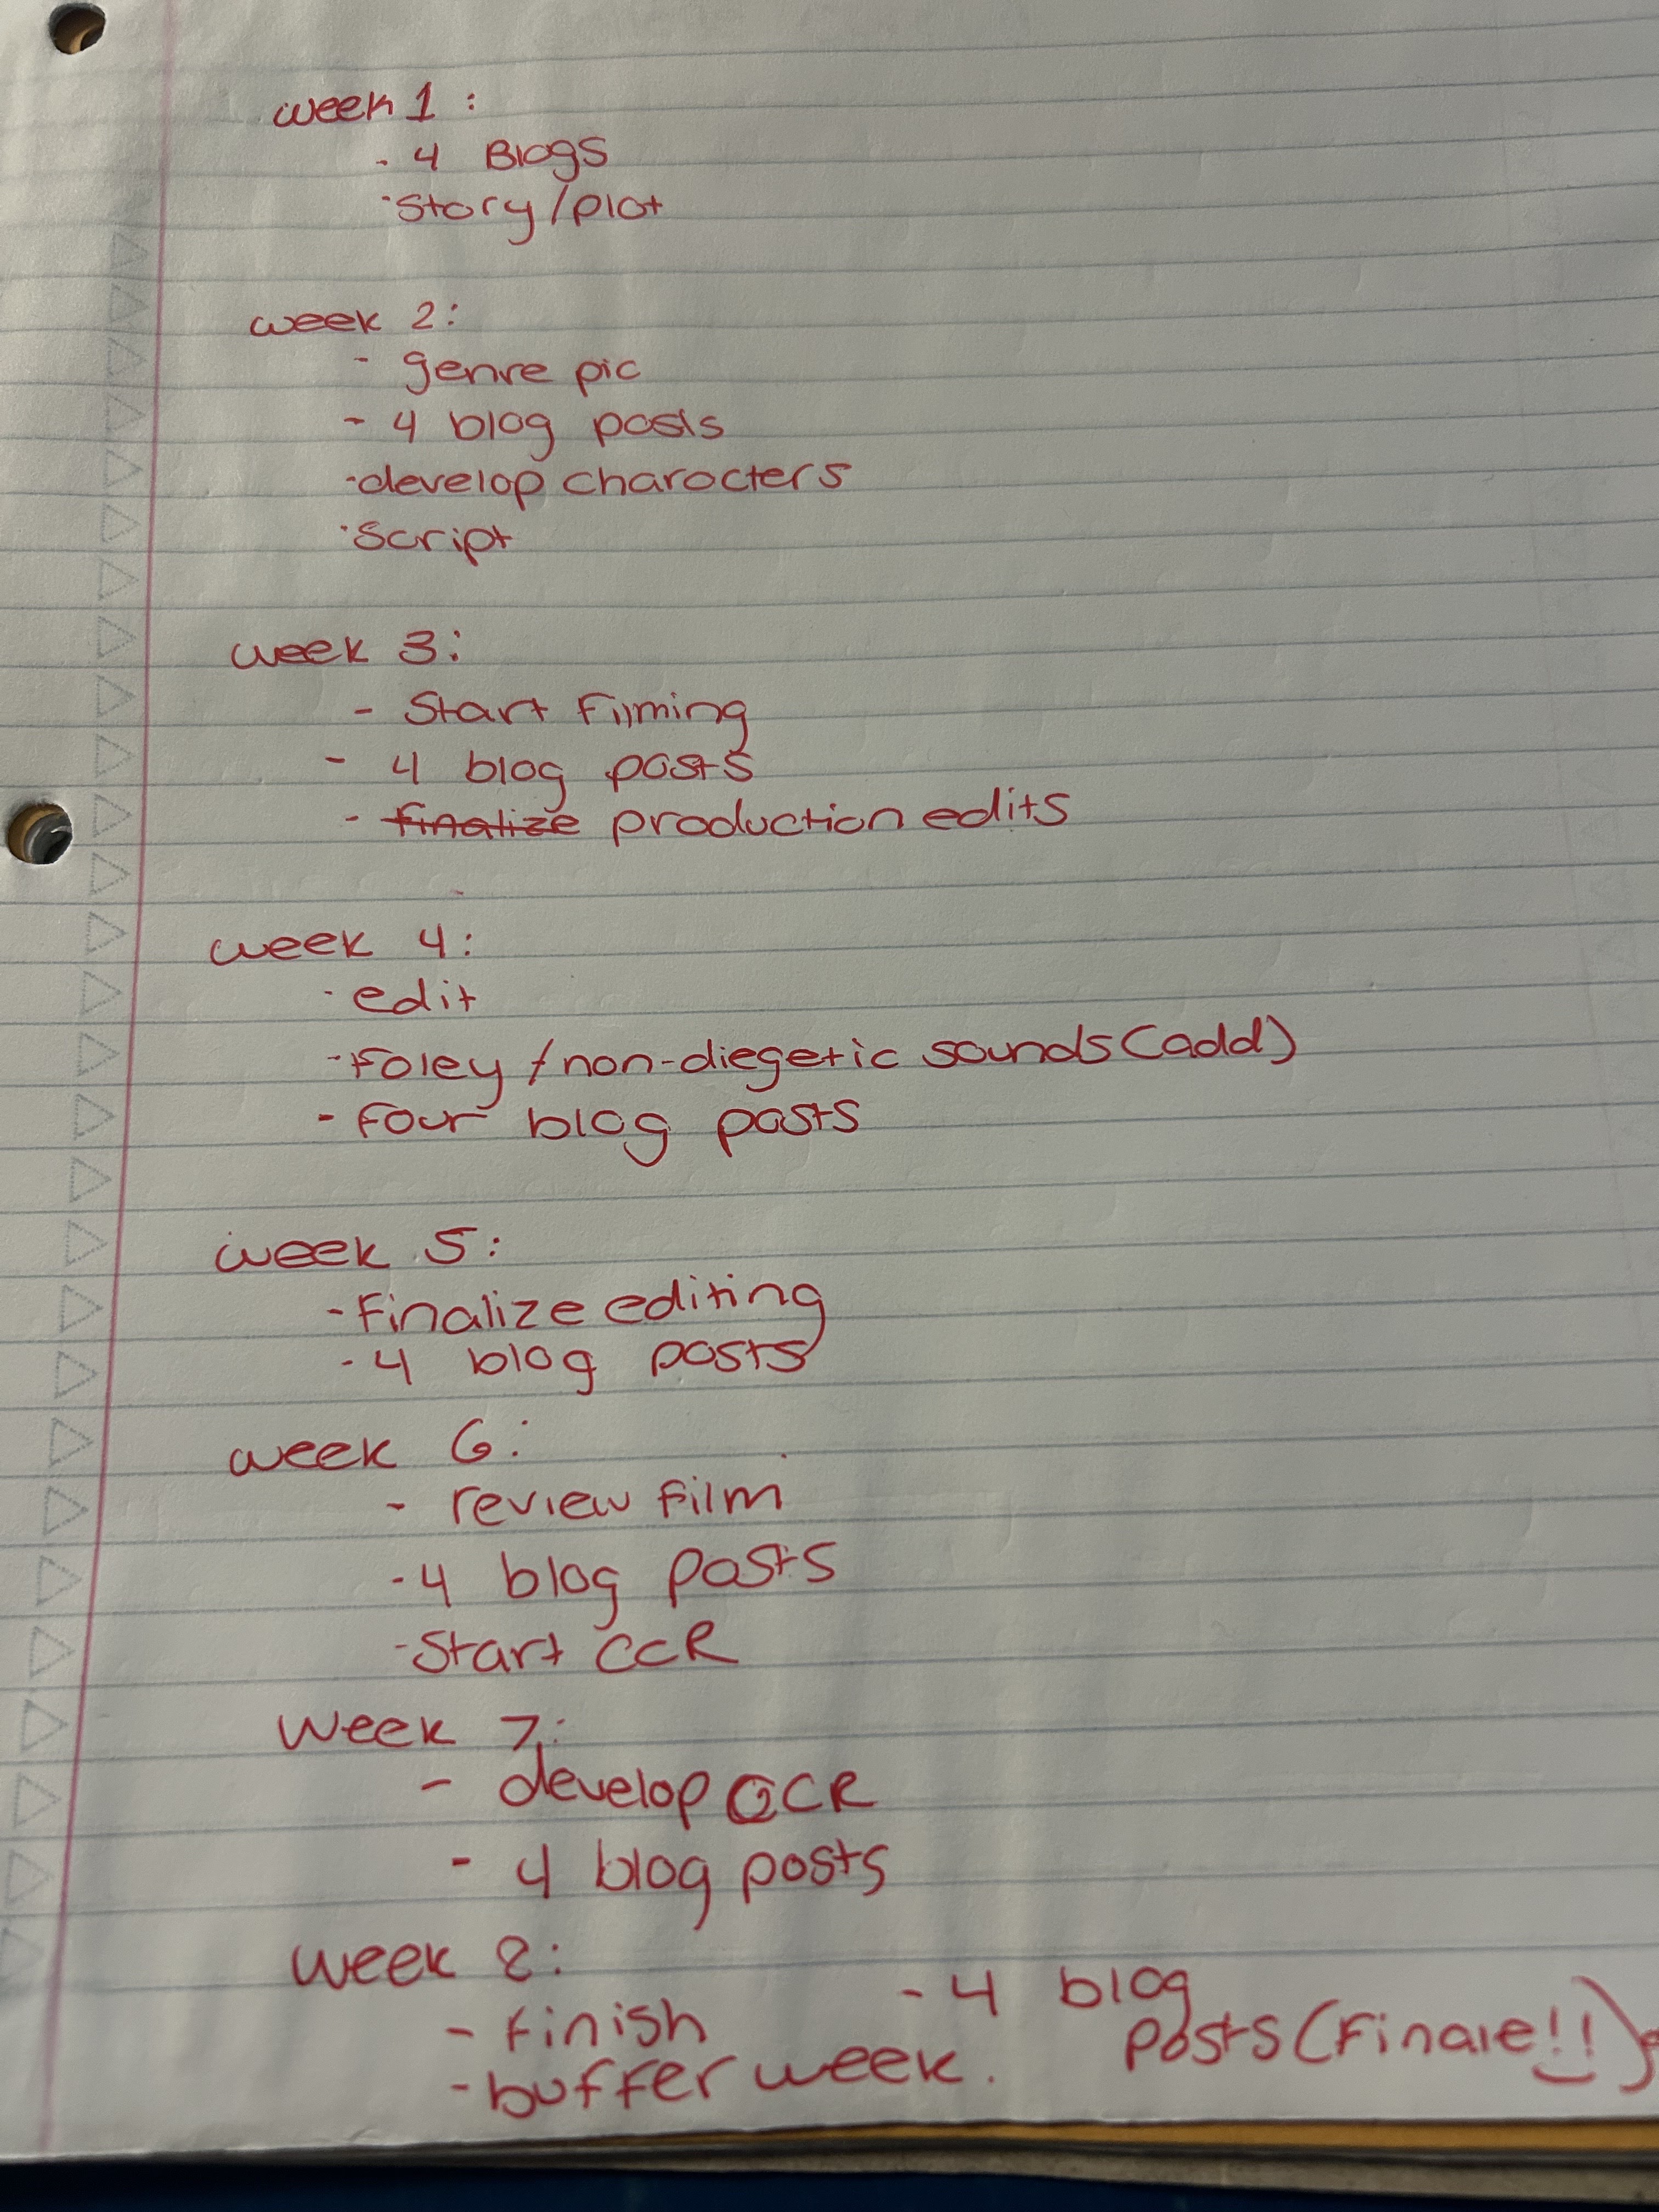 week 1 :
- 4 Blogs
-story/plot
week 2:
- genre pic
- 4 blog posts
-develop characters
-script
week 3:
- Start filming
- 4 blog posts
- finalize production edits
week 4:
- edit
-foley / non-diegetic sounds (add)
- four blog posts
week 5:
-finalize editing
-4 blog posts
week 6:
- review film
-4 blog posts
-Start CCR
Week 7:
- develop CCR
- 4 blog posts
week 8:
- finish
-buffer week.
- 4 blog
posts (finale!!)